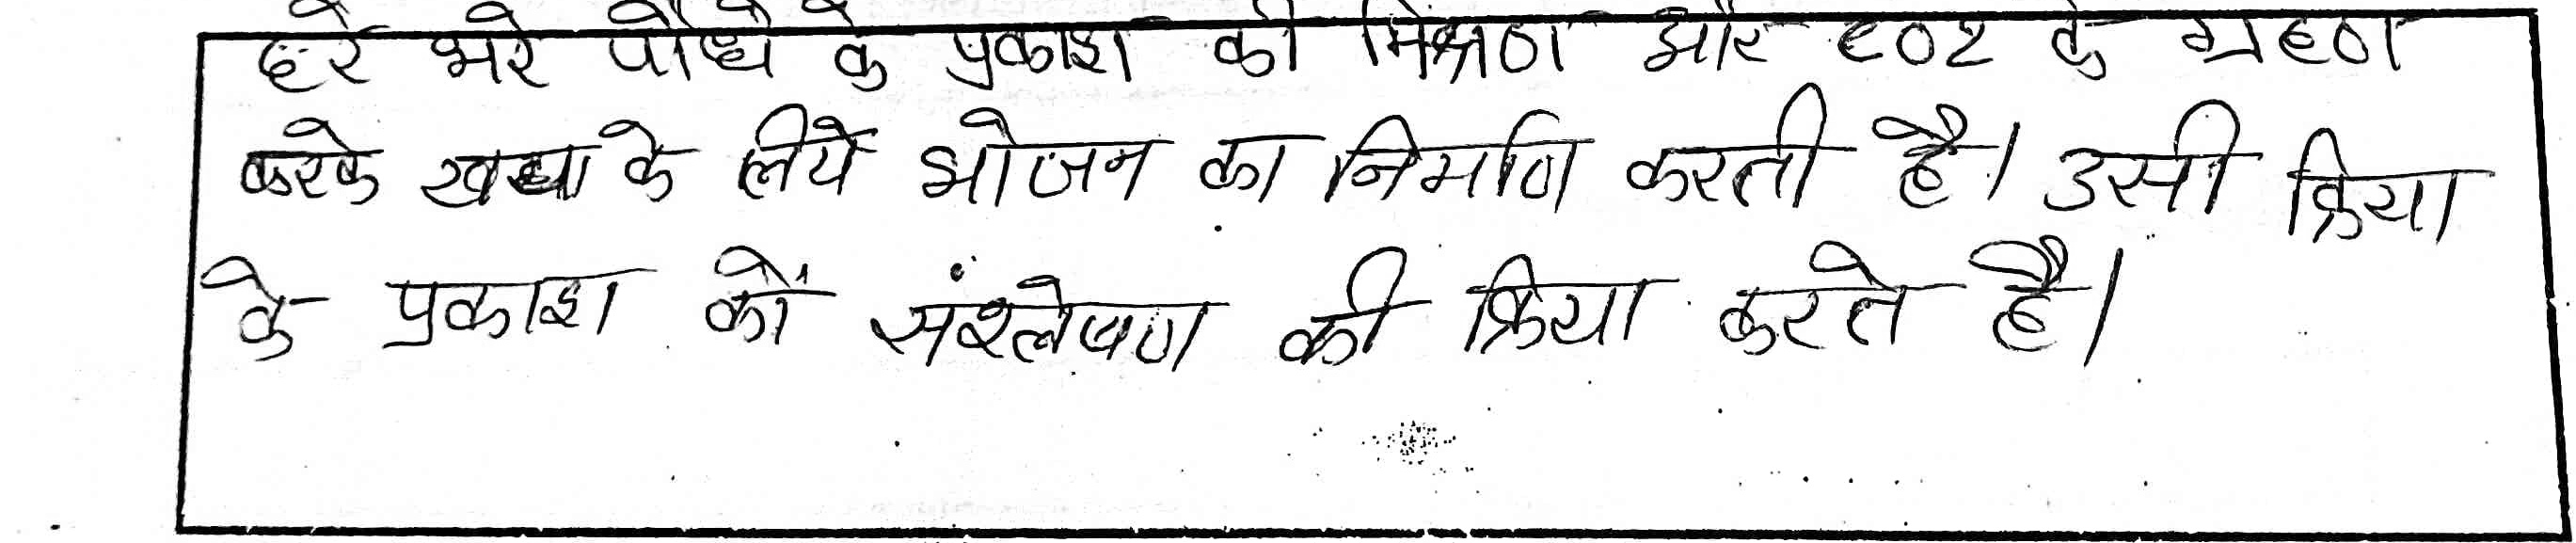 हरे भरे पौधे के प्रकाश की मिश्रण और CO2 के ग्रहण
करके के लिये भोजन का निर्माण करती है। उसी क्रिया
के प्रकाश कों संश्लेषण की क्रिया करते है।